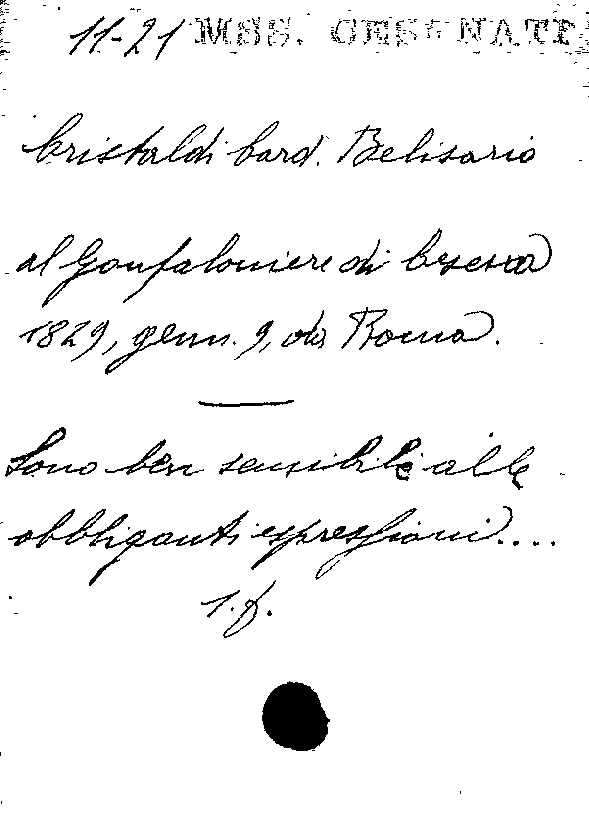 11-21 MSS. CESENATI
Cristaldi Card. Belisario
al Gonfaloniere di Cesena
1829, genn. 9, da Roma.
Sono ben sensibile alle
obbliganti espressioni....
1. f.